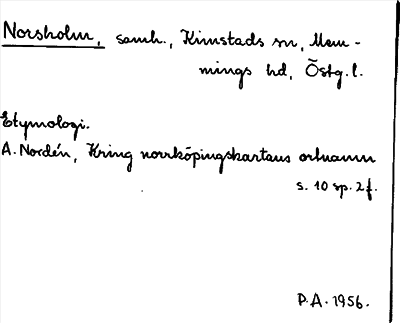 Norsholm, samh., Kimstads sn, Mem-
mings hd, Östg. l.
Etymologi.
A. Nordén, Kring norrköpingskartans ortnamn
s. 10 sp. 2 f.
P.A. 1956.